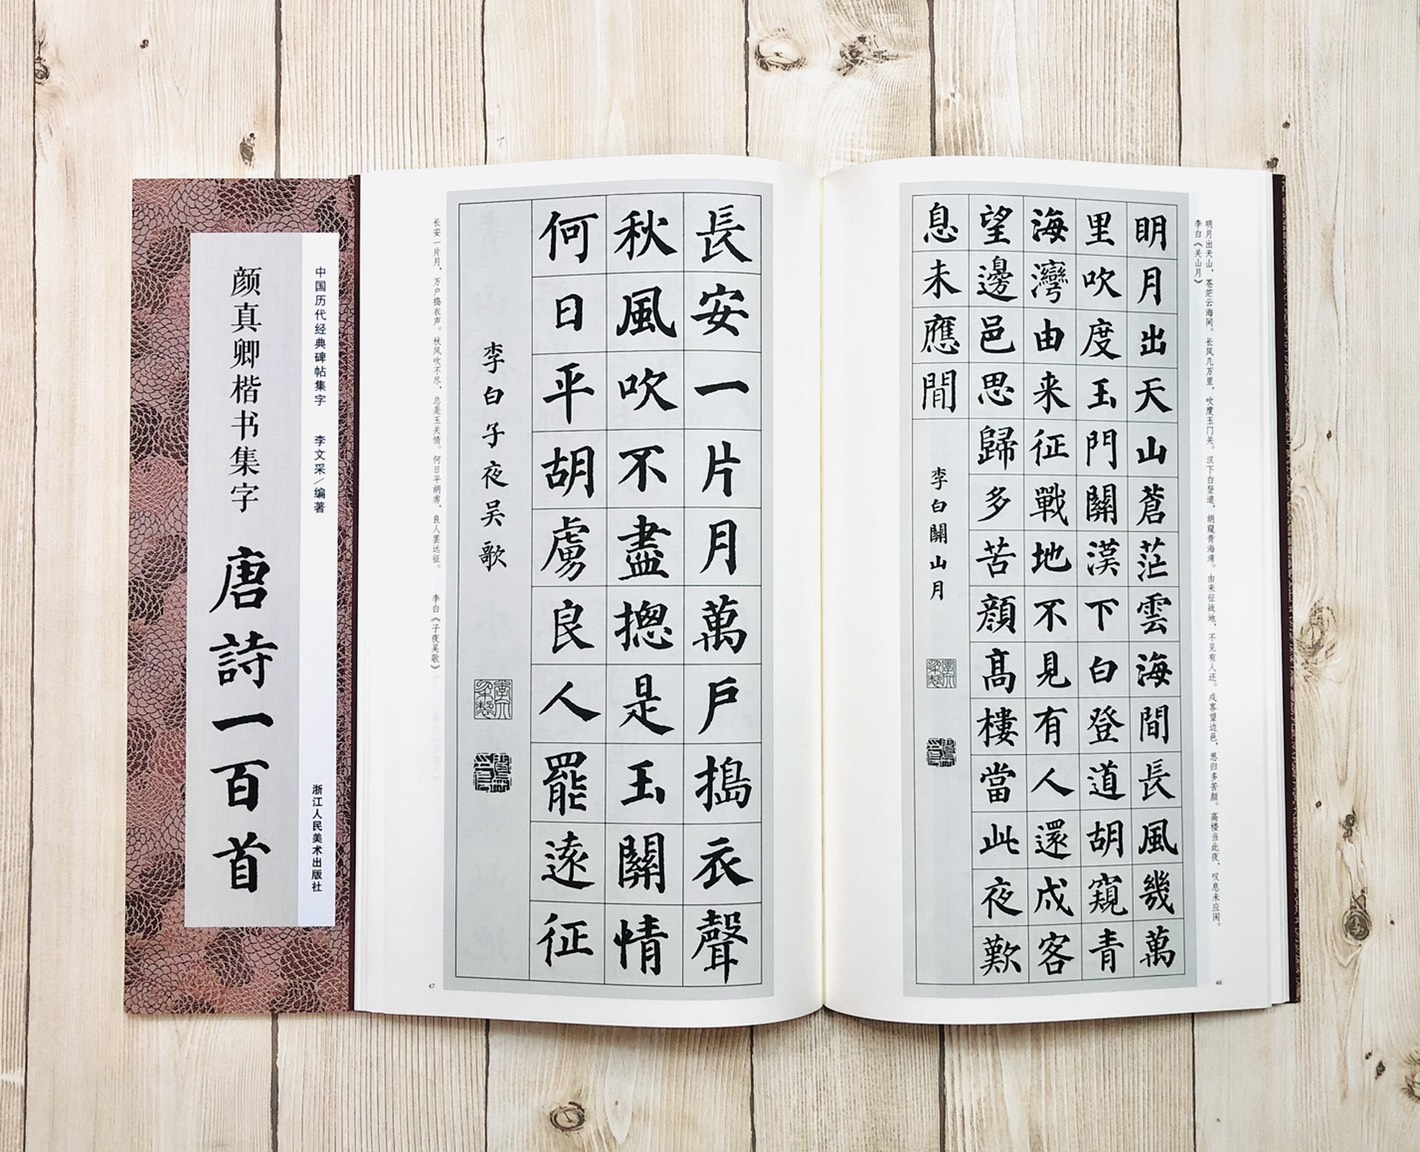 明月出天山蒼茫雲海間長風幾萬
里吹度玉門關漢下白登道胡窺青
海灣由来征戰地不見有人還戍客
望邊邑思歸多苦顔髙樓當此夜歎
息未應閒
李白關山月
明月出天山，苍茫云海间。长风几万里，吹度玉门关。汉下白登道，胡窥青海湾。由来征战地，不见有人还。戍客望边邑，思归多苦颜。高楼当此夜，叹息未应闲。
李白《关山月》
46
長安一片月萬戶搗衣聲
秋風吹不盡摠是玉關情
何日平胡虜良人罷遠征
李白子夜吴歌
长安一片月，万户捣衣声。秋风吹不尽，总是玉关情。何日平胡虏，良人罢远征。 李白《子夜吴歌》
47
中国历代经典碑帖集字 李文采／编著
浙江人民美术出版社
颜真卿楷书集字
唐詩一百首